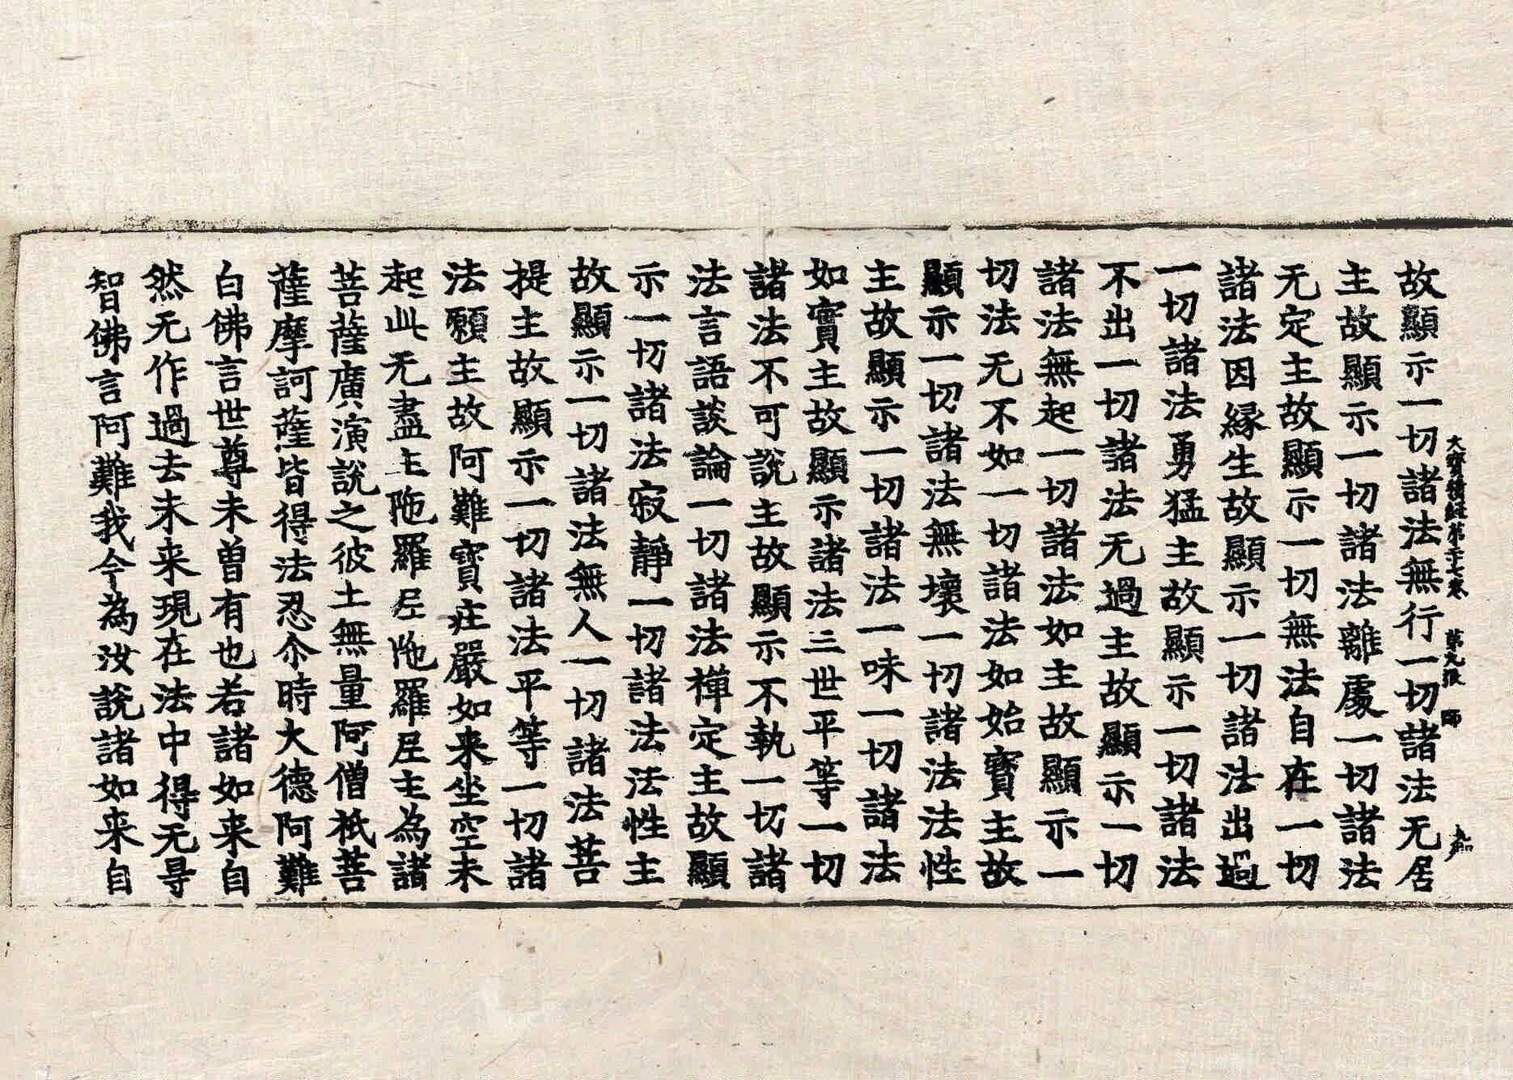 大寳積経第二十七卷　第九張　師
故顯示一切諸法無行一切諸法无居
主故顯示一切諸法離處一切諸法
无定主故顯示一切無法自在一切
諸法因縁生故顯示一切諸法出過
一切諸法勇猛主故顯示一切諸法
不出一切諸法无過主故顯示一切
諸法無起一切諸法如主故顯示一
切法无不如一切諸法如始寳主故
顯示一切諸法無壞一切諸法法性
主故顯示一切諸法一味一切諸法
如實主故顯示諸法三世平等一切
諸法不可說主故顯示不執一切諸
法言語談論一切諸法禪定主故顯
示一切諸法寂靜一切諸法法性主
故顯示一切諸法無人一切諸法菩
提主故顯示一切諸法平等一切諸
法願主故阿難寳庄嚴如来坐空未
起此无盡主陁羅尼陁羅尼主為諸
菩薩廣演說之彼土無量阿僧祇菩
薩摩訶薩皆得法忍尒時大德阿難
白佛言世尊未曽有也若諸如来自
然无作過去未来現在法中得无㝵
智佛言阿難我今為汝說諸如来自